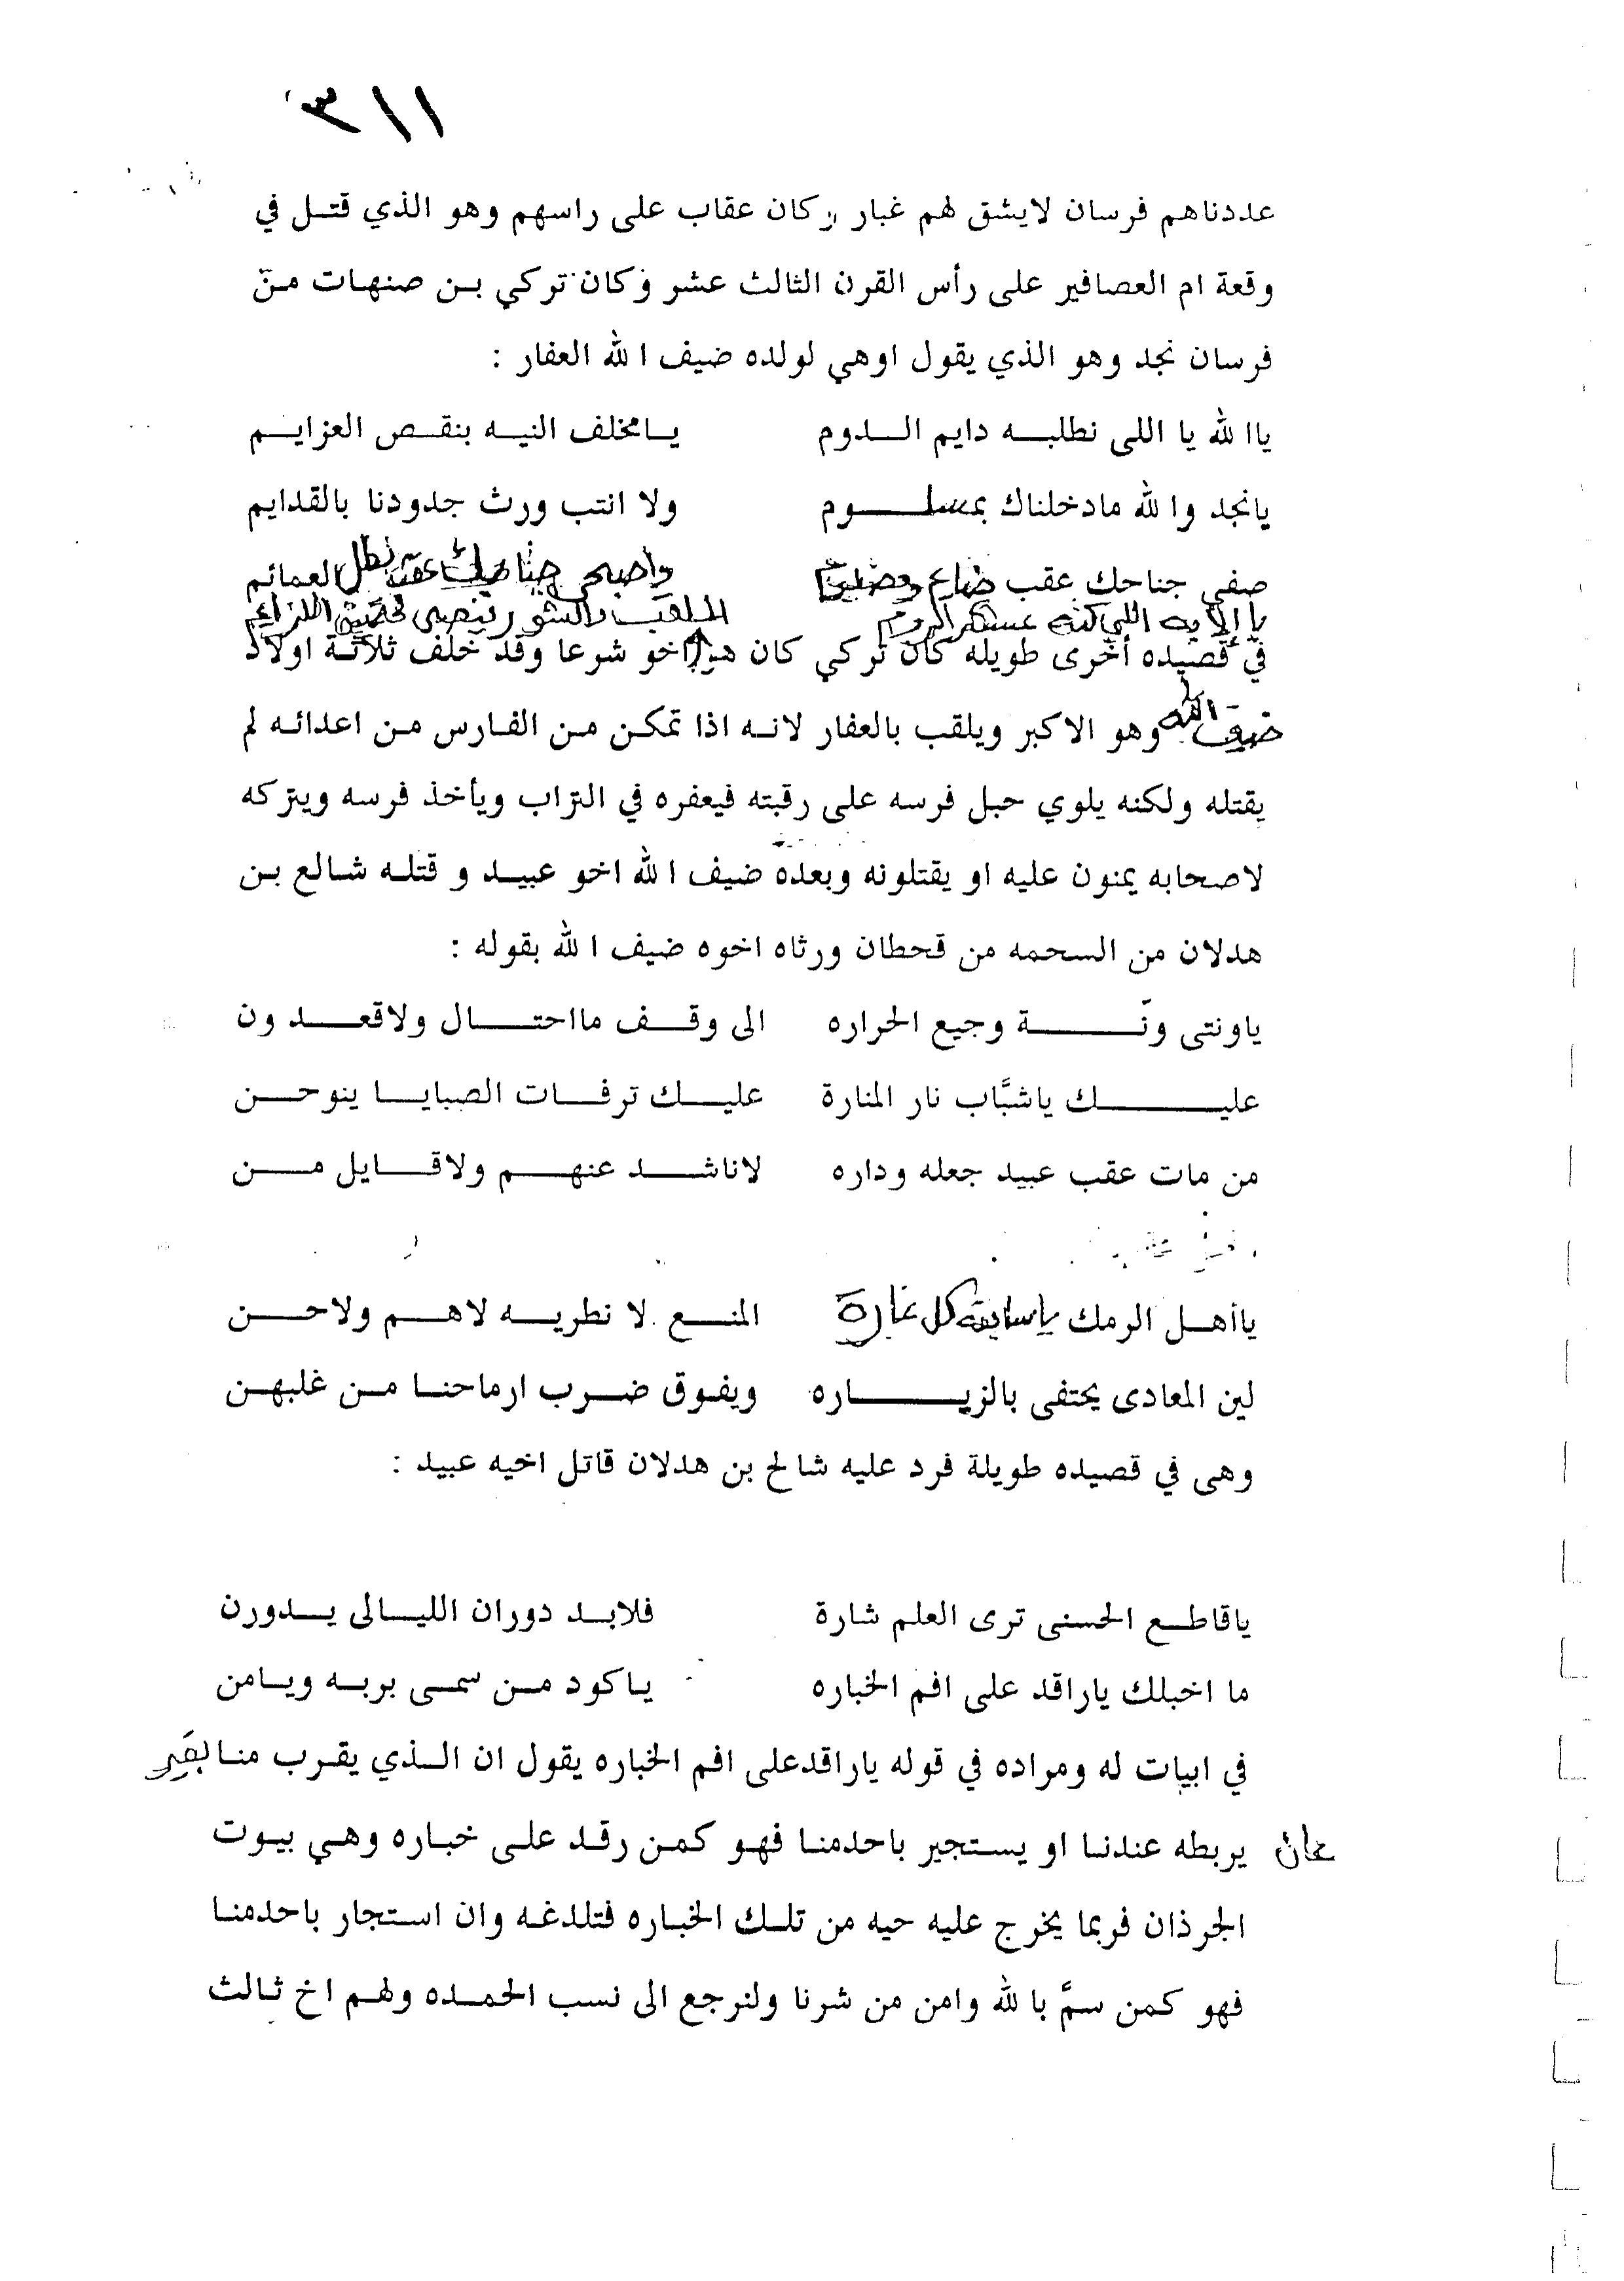 ٣١١
عددناهم فرسان لايشق لهم غبار وكان عقاب على راسهم وهو الذي قتل في
وقعة ام العصافير على رأس القرن الثالث عشر وكان تركي بن صنهات من
فرسان نجد وهو الذي يقول اوهي لولده ضيف الله العفار :
ياالله يا اللى نطلبه دايم الدوم يامخلف النيه بنقص العزايم
يانجد والله مادخلناك بمسلوم ولا انتب ورث جدودنا بالقدايم
صفي جناحك عقب واصبح جناحك عقب العمائم
اللي كنه عسكر الروم
في قصيده أخرى طويله كان تركي كان هو اخو شرعا وقد خلف ثلاثة اولاد
ضيف الله وهو الاكبر ويلقب بالعفار لانه اذا تمكن من الفارس من اعدائه لم
يقتله ولكنه يلوي حبل فرسه على رقبته فيعفره في التراب ويأخذ فرسه ويتركه
لاصحابه يمنون عليه او يقتلونه وبعده ضيف الله اخو عبيد و قتله شالع بن
هدلان من السحمه من قحطان ورثاه اخوه ضيف الله بقوله :
ياونتى ونّة وجيع الحراره الى وقف مااحتال ولاقعد ون
عليك ياشبَّاب نار المنارة عليك ترفات الصبايا ينوحن
من مات عقب عبيد جعله وداره لاناشد عنهم ولاقايل من
ياأهل الرمك ياسابقة كل غارة المنع لا نطريه لاهم ولاحن
لين المعادى يحتفى بالزياره ويفوق ضرب ارماحنا من غلبهن
وهى في قصيده طويلة فرد عليه شالح بن هدلان قاتل اخيه عبيد :
ياقاطع الحسنى ترى العلم شارة فلابد دوران الليالى يدورن
ما اخبلك ياراقد على افم الخباره ياكود من سمى بربه ويامن
في ابيات له ومراده في قوله ياراقدعلى افم الخباره يقول ان الذي يقرب منا
يربطه عندنا او يستجير باحدمنا فهو كمن رقد على خباره وهي بيوت
الجرذان فربما يخرج عليه حيه من تلك الخباره فتلدغه وان استجار باحدمنا
فهو كمن سمَّ بالله وامن من شرنا ولنرجع الى نسب الحمده ولهم اخ ثالث